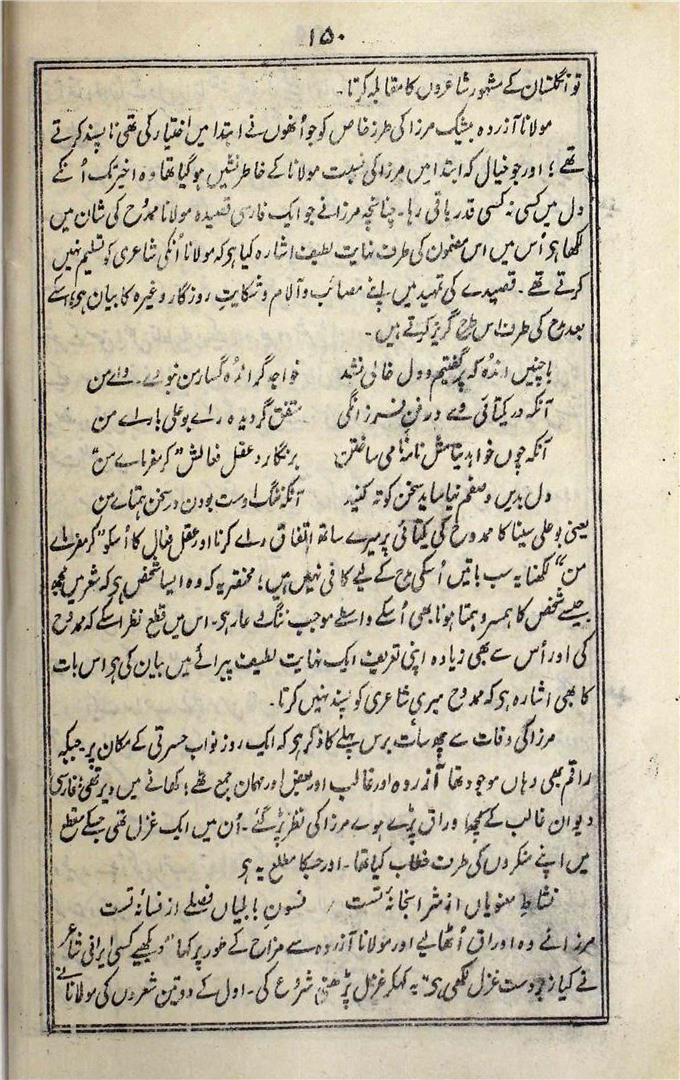 ۱۵۰
تو انگلستان کے مشہور شاعروں کا مقابلہ کرتا۔
مولانا آزردہ بیشک مرزا کی طرزِ خاص کو جو اُنھوں نے ابتدا میں اختیار کی تھی ناپسند کرتے
تھے؛ اور جو خیال کہ ابتدا میں مرزا کی نسبت مولانا کے خاطر نشیں ہوگیا تھا وہ اخیر تک اُنکے
دل میں کسی نہ کسی قدر باقی رہا۔ چنانچہ مرزا نے جو ایک فارسی قصیدہ مولانا ممدوح کی شان میں
لکھا ہی اُس میں اس مضمون کی طرف نہایت لطیف اشارہ کیا ہی کہ مولانا اُنکی شاعری کو تسلیم نہیں
کرتے تھے۔ قصیدے کی تمہید میں اپنے مصائب و آلام و شکایتِ روزگار وغیرہ کا بیان ہی، اسکے
بعد مدح کی طرف اس طرح گریز کرتے ہیں۔
باچنیں اندُہ کہ برگفتیم و دل خالی نشد خواجہ گر اندُہ گسارِ من نبودے۔ وائے من
آنکہ در یکتائی وے در فنِ فرزانگی متفق گردیدہ رائے بوعلی با رائے من
آنکہ چوں خواہد بنامش نامہ نامی ساختن برنگارد عقلِ فعالش "کرمفرمائے من"
دل بدیں وصفم نیاساید سخن کوتہ کنید آنکہ ننگِ اوست بودن در سخن ہمتائے من
یعنی بوعلی سینا کا ممدوح کی یکتائی پر میرے ساتھ اتفاق رائے کرنا اور عقلِ فعال کا اُسکو "کرمفرمائے
من" لکھنا یہ سب باتیں اُسکی مدح کے لیے کافی نہیں ہیں؛ مختصر یہ کہ وہ ایسا شخص ہی کہ شعر میں مجھ
جیسے شخص کا ہمسر و ہمتا ہونا بھی اُسکے واسطے موجب ننگ و عار ہی۔ اس میں قطع نظر اسکے کہ ممدوح
کی اور اُس سے بھی زیادہ اپنی تعریف ایک نہایت لطیف پیرائے میں بیان کی ہی اس بات
کا بھی اشارہ ہی کہ ممدوح میری شاعری کو پسند نہیں کرتا۔
مرزا کی وفات سے چھ سات برس پہلے کا ذکر ہی کہ ایک روز نواب حسرتی کے مکان پر جبکہ
راقم بھی وہاں موجود تھا آزردہ اور غالب اور بعض اور مہمان جمع تھے؛ کھانے میں دیر تھی؛ فارسی
دیوان غالب کے کچھ اوراق پڑے ہوے مرزا کی نظر پڑ گئے۔ اُن میں ایک غزل تھی جسکے مقطع
میں اپنے منکروں کی طرف خطاب کیا تھا۔ اور جسکا مطلع یہ ہی
نشاطِ معنویاں از شرابخانۂ تست فسونِ بابلیاں فصلے از فسانۂ تست
مرزا نے وہ اوراق اُٹھالیے اور مولانا آزردہ سے مزاح کے طور پر کہا "دیکھیے کسی ایرانی شاعر
نے کیا زبردست غزل لکھی ہی" یہ کہکر غزل پڑھنی شروع کی۔ اول کے دو تین شعروں کی مولانا نے